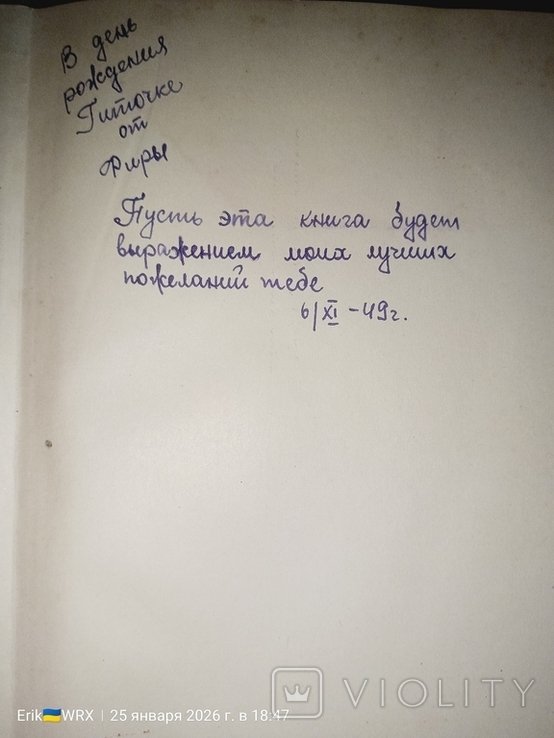 В день
рождения
Гиточке
от
Фиры
Пусть эта книга будет
выражением моих лучших
пожеланий тебе
6/XI-49г.
VIOLITY
Erik🇺🇦WRX | 25 января 2026 г. в 18:47